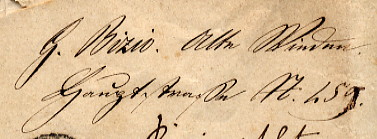 G. Bizio. Alte Wieden.
Hauptstrasse N: 459.